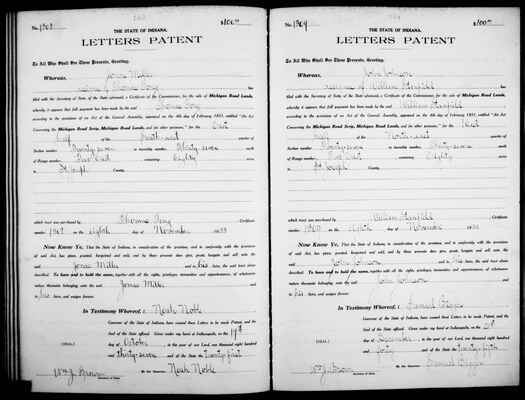 No. 1303 $100.00
THE STATE OF INDIANA.
LETTERS PATENT
To All Who Shall See These Presents, Greeting:
Whereas, Jonas Miller
assignee of Thomas Long has
filed with the Secretary of State of the State aforesaid, a Certificate of the Commissioner, for the sale of Michigan Road Lands,
whereby it appears that full payment has been made by the said Thomas Long
according to the provisions of an Act of the General Assembly, approved on the 4th day of February 1831, entitled "An Act
Concerning the Michigan Road Scrip, Michigan Road Lands, and for other purposes," for the East
half North west quarter of
Section number Twenty-seven in Township number Thirty seven
of Range number Two East containing Eighty acres in
St. Joseph County.
which tract was purchased by Thomas Long Certificate
number on the eighth day of November
Now Know Ye, That the State of Indiana, in consideration of the premises, and in conformity with the provisions
of said Act has given, granted, bargained and sold, and by these presents does give, grant, bargain and sell unto the
said Jonas Miller and to his heirs, the said tract above
described. To have and to hold the same, together with all the rights, privileges, immunities and appurtenances, of whatsoever
nature thereunto belonging unto the said Jonas Miller and
to his heirs, and assigns forever.
In Testimony Whereof, I Noah Noble
Governor of the State of Indiana, have caused these Letters to be made Patent, and the
Seal of the State affixed. Given under my hand at Indianapolis, on the
(SEAL) day of October in the year of our Lord, one thousand eight hundred
and thirty-seven and of the State the twenty first
By the Governor: Noah Noble
Wm. J. Brown Secretary of State.
No. 1304 $100.00
THE STATE OF INDIANA.
LETTERS PATENT
To All Who Shall See These Presents, Greeting:
Whereas, John Johnson
assignee of William Stanfield has
filed with the Secretary of State of the State aforesaid, a Certificate of the Commissioner, for the sale of Michigan Road Lands,
whereby it appears that full payment has been made by the said William Stanfield
according to the provisions of an Act of the General Assembly, approved on the 4th day of February 1831, entitled "An Act
Concerning the Michigan Road Scrip, Michigan Road Lands, and for other purposes," for the West
half North west quarter of
Section number Twenty-seven in Township number Thirty-seven
of Range number Two East containing Eighty acres in
St. Joseph County.
which tract was purchased by William Stanfield Certificate
number on the day of November
Now Know Ye, That the State of Indiana, in consideration of the premises, and in conformity with the provisions
of said Act has given, granted, bargained and sold, and by these presents does give, grant, bargain and sell unto the
said John Johnson and to his heirs, the said tract above
described. To have and to hold the same, together with all the rights, privileges, immunities and appurtenances, of whatsoever
nature thereunto belonging unto the said John Johnson and
to his heirs, and assigns forever.
In Testimony Whereof, I Samuel Bigger
Governor of the State of Indiana, have caused these Letters to be made Patent, and the
Seal of the State affixed. Given under my hand at Indianapolis, on the
(SEAL) day of December in the year of our Lord, one thousand eight hundred
and forty and of the State the twenty fifth
By the Governor: Samuel Bigger
Wm. J. Brown Secretary of State.